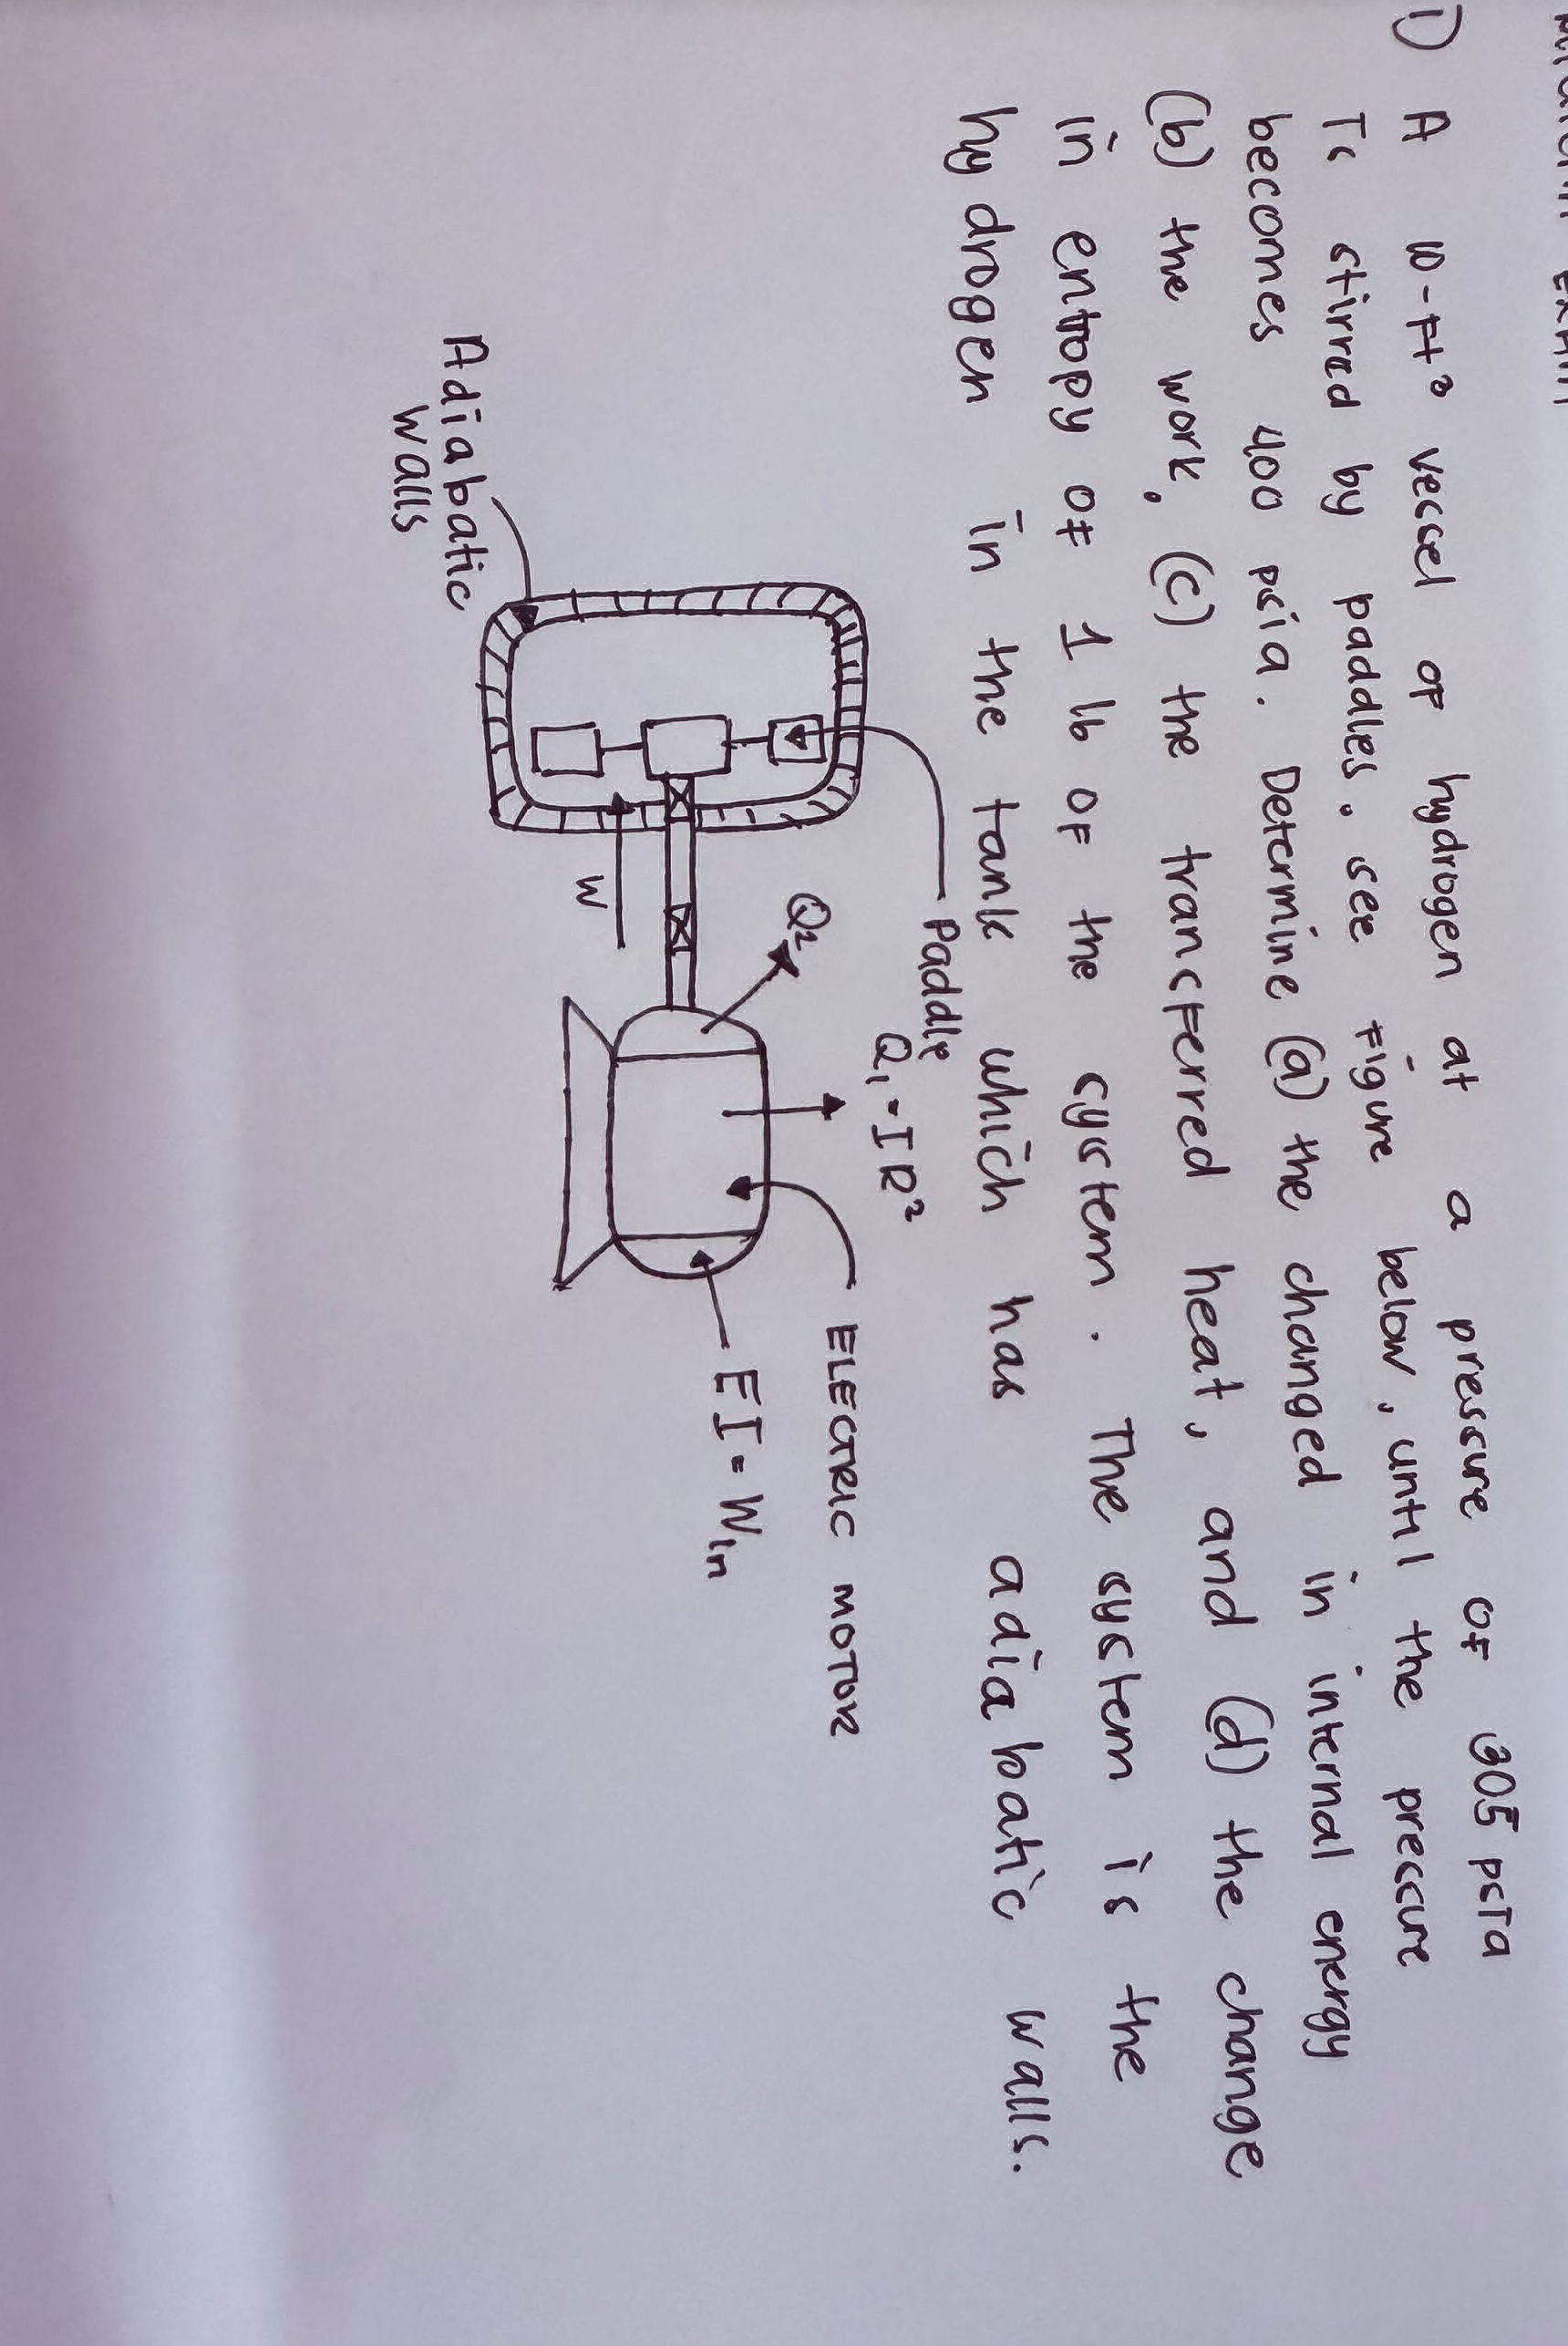 1) A 10-ft³ vessel of hydrogen at a pressure of 305 psia
is stirred by paddles. see figure below, until the pressure
becomes 400 psia. Determine (a) the changed in internal energy
(b) the work, (c) the transferred heat, and (d) the change
in entropy of 1 lb of the system. The system is the
hydrogen in the tank which has adiabatic walls.
Paddle
Q₁ = IR²
Q₂
ELECTRIC MOTOR
EI = Win
W
Adiabatic
walls